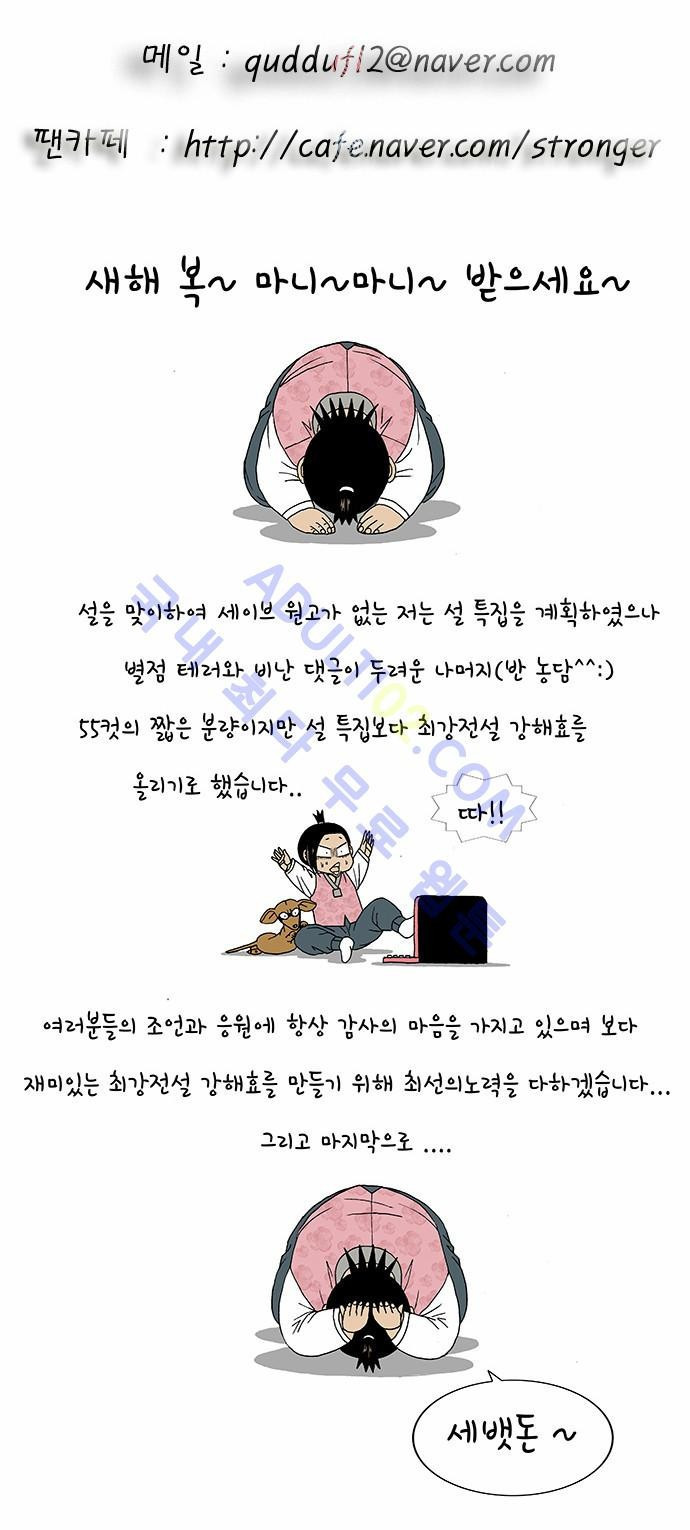 메일 : quddufl2@naver.com
팬카페 : http://cafe.naver.com/stronger
새해 복~ 마니~마니~ 받으세요~
설을 맞이하여 세이브 원고가 없는 저는 설 특집을 계획하였으나
별점 테러와 비난 댓글이 두려운 나머지(반 농담^^:)
55컷의 짧은 분량이지만 설 특집보다 최강전설 강해효를
올리기로 했습니다..
따!!
여러분들의 조언과 응원에 항상 감사의 마음을 가지고 있으며 보다
재미있는 최강전설 강해효를 만들기 위해 최선의노력을 다하겠습니다...
그리고 마지막으로 ....
세뱃돈 ~
ADULT102.COM
국내 최다 무료 웹툰